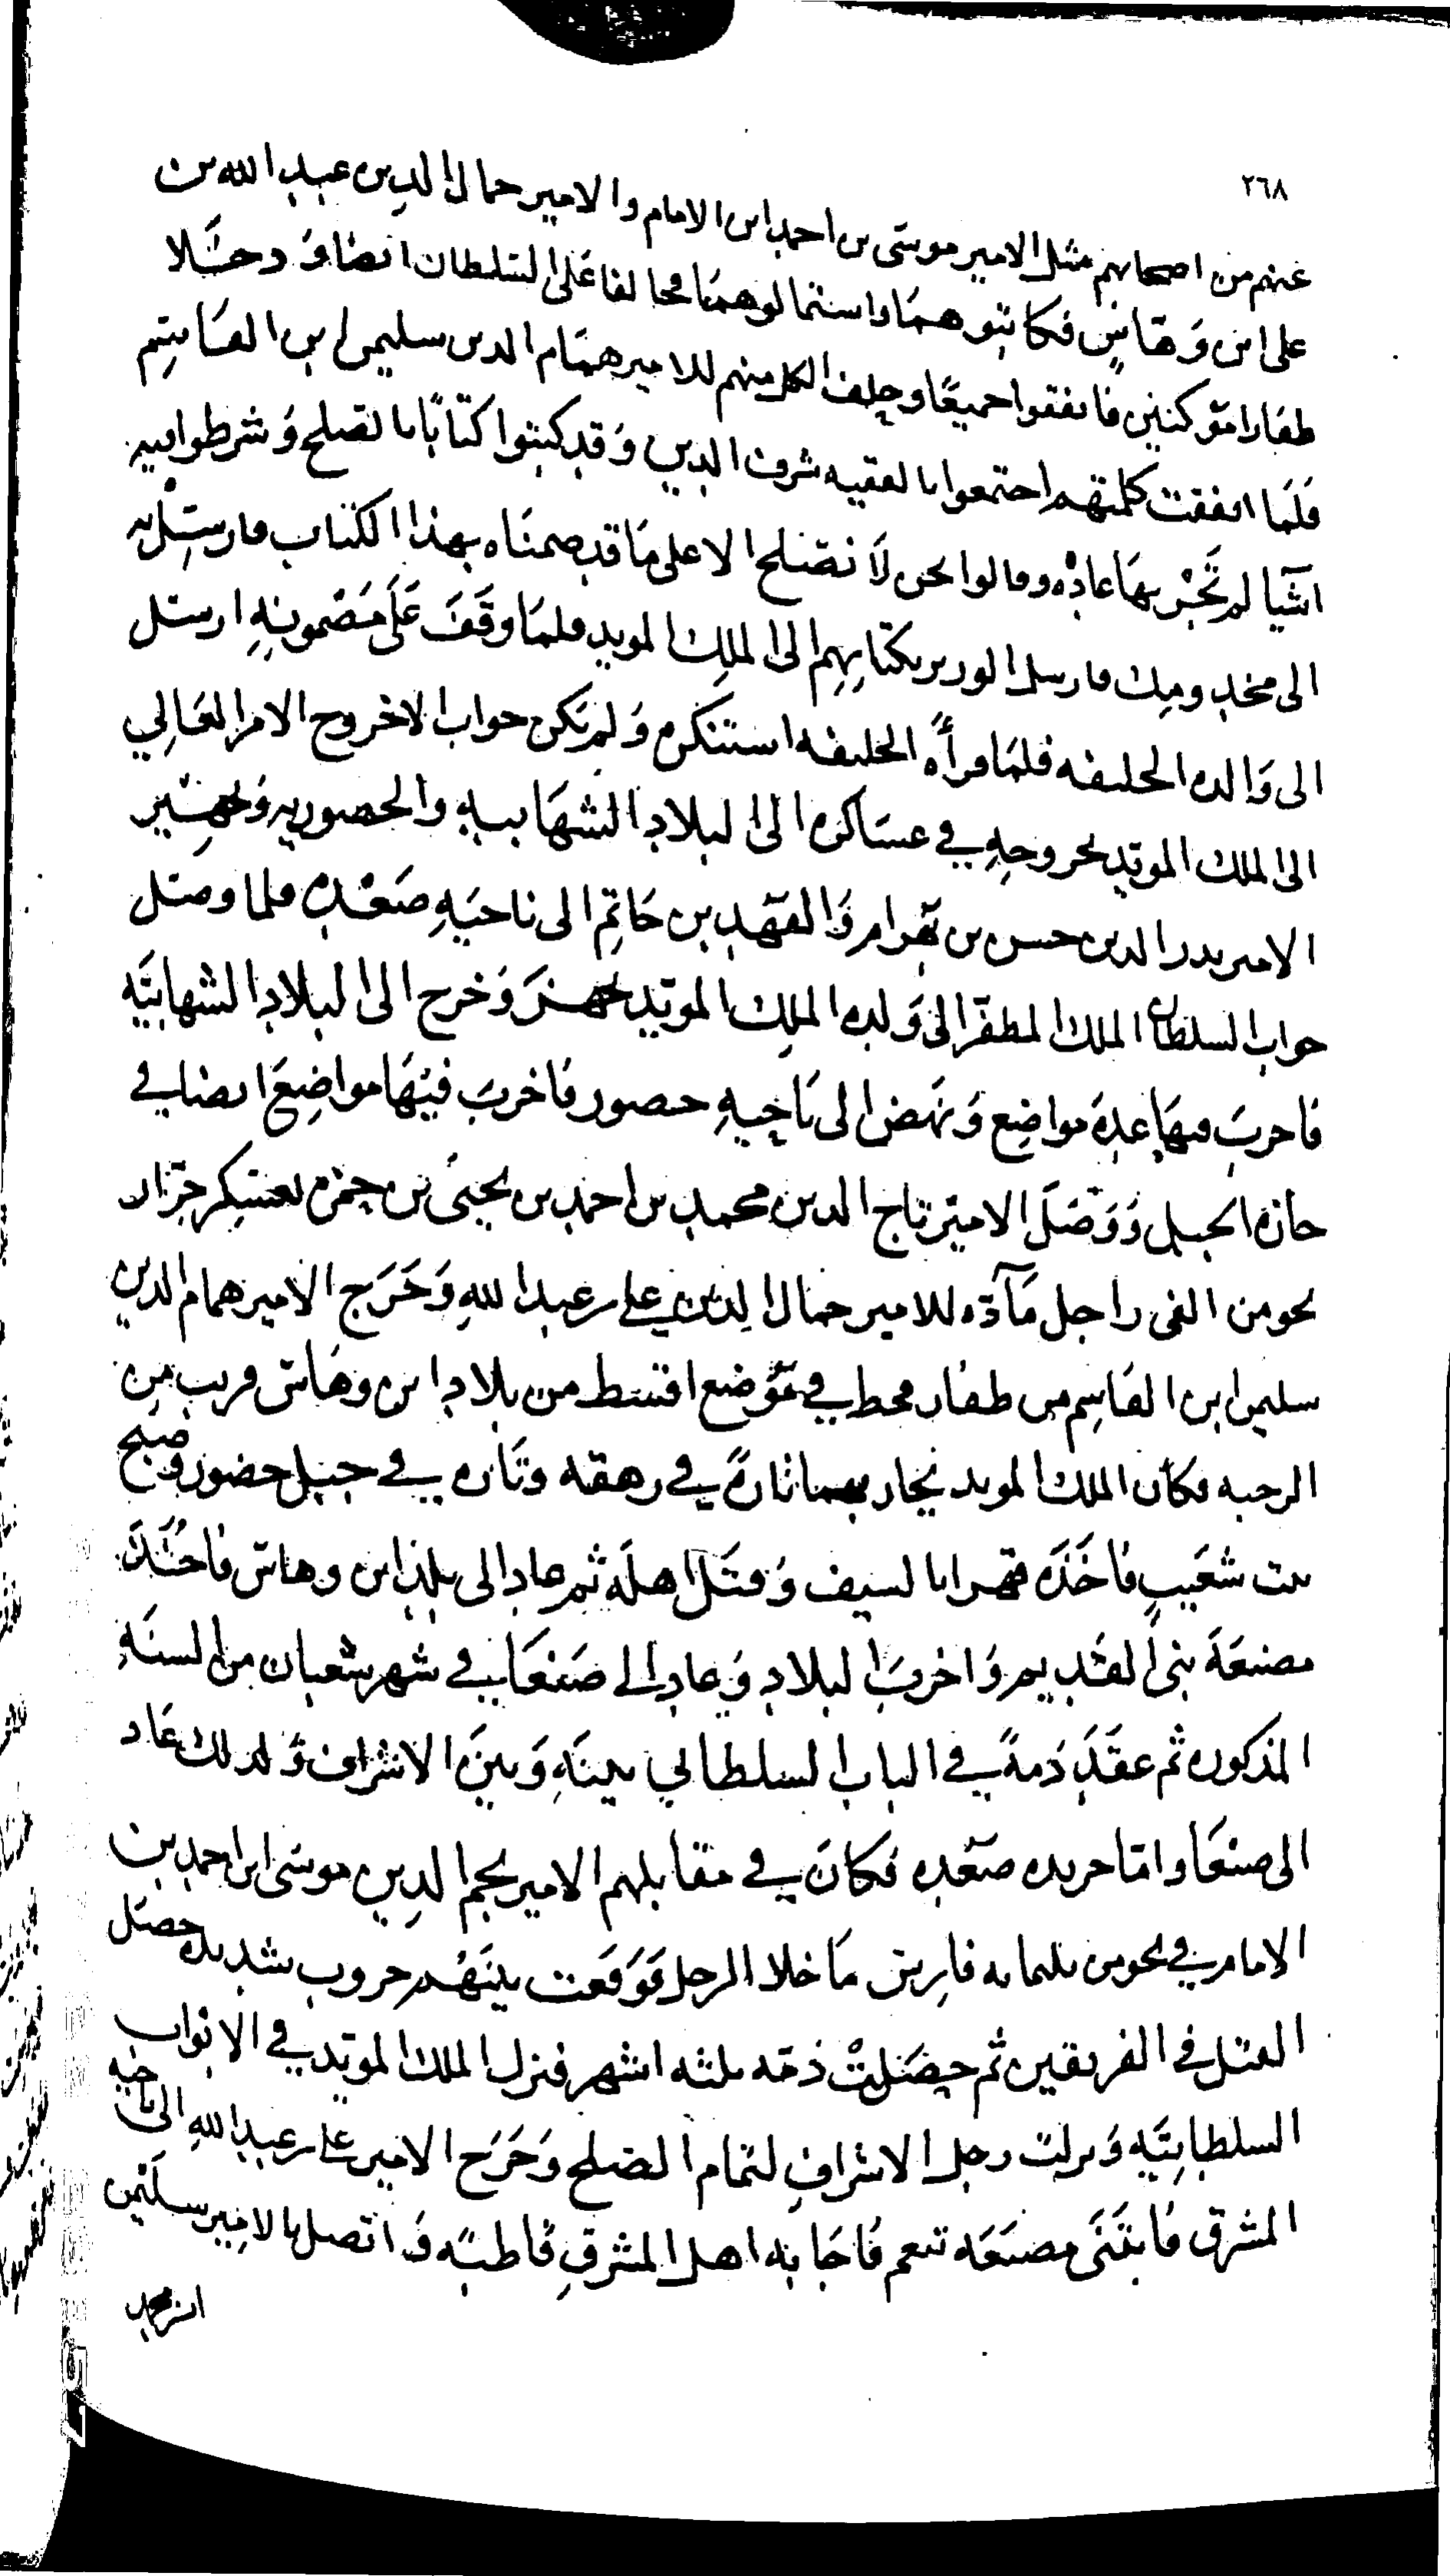 ٢٦٨
عنهم من اصحابهم مثل الامير موسى بن احمد ابن الامام والامير جمال الدين عبد الله بن
على ابن وهاس فكاتبوهما واستمالوهما فحالفا على السلطان ايضا ودخلا
ظفارا متوكنين فاتفقوا جميعا وحلف الكل منهم للامير همام الدين سليمن ابن القاسم
فلما اتفقت كلمتهم اجتمعوا بالفقيه شرف الدين وقد كتبوا كتابا بالصلح وشرطوا فيه
اشيا لم تجر بها عاده وقالوا نحن لا نصلح الا على ما قد ضمناه بهذا الكتاب فارسل به
الى مخدومك فارسل الوزير بكتابهم الى الملك المويد فلما وقف على مضمونه ارسل
الى والده الخليفه فلما قرأه الخليفه استنكره ولم يكن جواب الا خروج الامر العالي
الى الملك المويد بخروجه في عساكره الى البلاد الشهابيه والحضوريه وتجهيز
الامير بدر الدين حسن بن بهرام والفهد بن حاتم الى ناحيه صعده فلما وصل
جواب السلطان الملك المظفر الى ولده الملك المويد تجهز وخرج الى البلاد الشهابيه
فاخرب فيها عدة مواضع ونهض الى ناحيه حضور فاخرب فيها مواضع ايضا في
حازه الجبل ووصل الامير تاج الدين محمد بن احمد بن يحيى بن حمزه بعسكر جرار
نحو من الفى راجل ماده للامير جمال الدين على بن عبد الله وخرج الامير همام الدين
سليمن ابن القاسم من ظفار فحط في موضع اقسط من بلاد ابن وهاس قريب من
الرحبه فكان الملك المويد يحاربهما تارة في رهقه وتاره في جبل حضور وصبح
بيت شعيب فاخذه قهرا بالسيف وقتل اهله ثم عاد الى بلد ابن وهاس فاخذ
مصنعة بنى القديم واخرب البلاد وعاد الى صنعا في شهر شعبان من السنه
المذكوره ثم عقد ذمة في الباب السلطاني بينه وبين الاشراف ولذلك عاد
الى صنعا واما جريده صعده فكان في مقابلهم الامير نجم الدين موسى ابن احمد بن
الامام في نحو من ثلثمايه فارس ما خلا الرجل فوقعت بينهم حروب شديده حصل
القتل في الفريقين ثم حصلت ذمه ثلثه اشهر فنزل الملك المويد في الابواب
السلطانيه ونزلت رجل الاشراف لتمام الصلح وخرج الامير على بن عبد الله الى ناحيه
المشرق فابتنى مصنعه تنعم فاجابه اهل المشرق قاطبه واتصل بالامير سليمن
ابن محمد